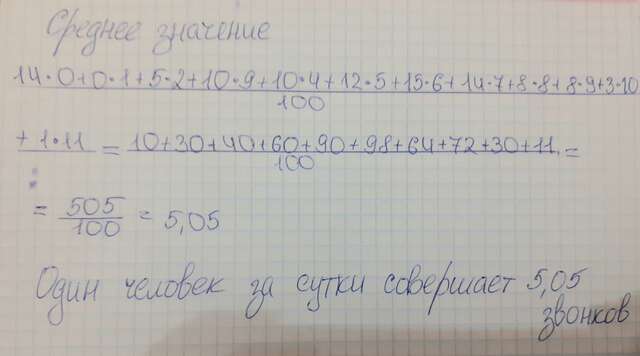 Среднее значение
14·0+0·1+5·2+10·9+10·4+12·5+15·6+14·7+8·8+8·9+3·10
100
+1·11 = 10+30+40+60+90+98+64+72+30+11 =
100
= 505
100 = 5,05
Один человек за сутки совершает 5,05
звонков